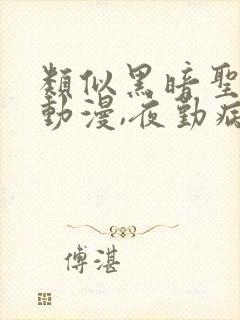 類似黑暗聖
動漫,夜勤病
傅湛